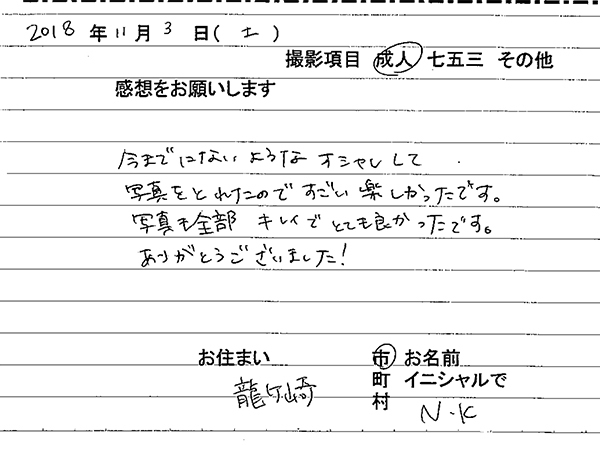 2018 年 11 月 3 日(土)
撮影項目 成人 七五三 その他
感想をお願いします
今までにないようなオシャレして
写真をとれたのですごい楽しかったです。
写真も全部 キレイでとても良かったです。
ありがとうございました!
お住まい 市 お名前
龍ヶ崎 町 イニシャルで
村 N.K